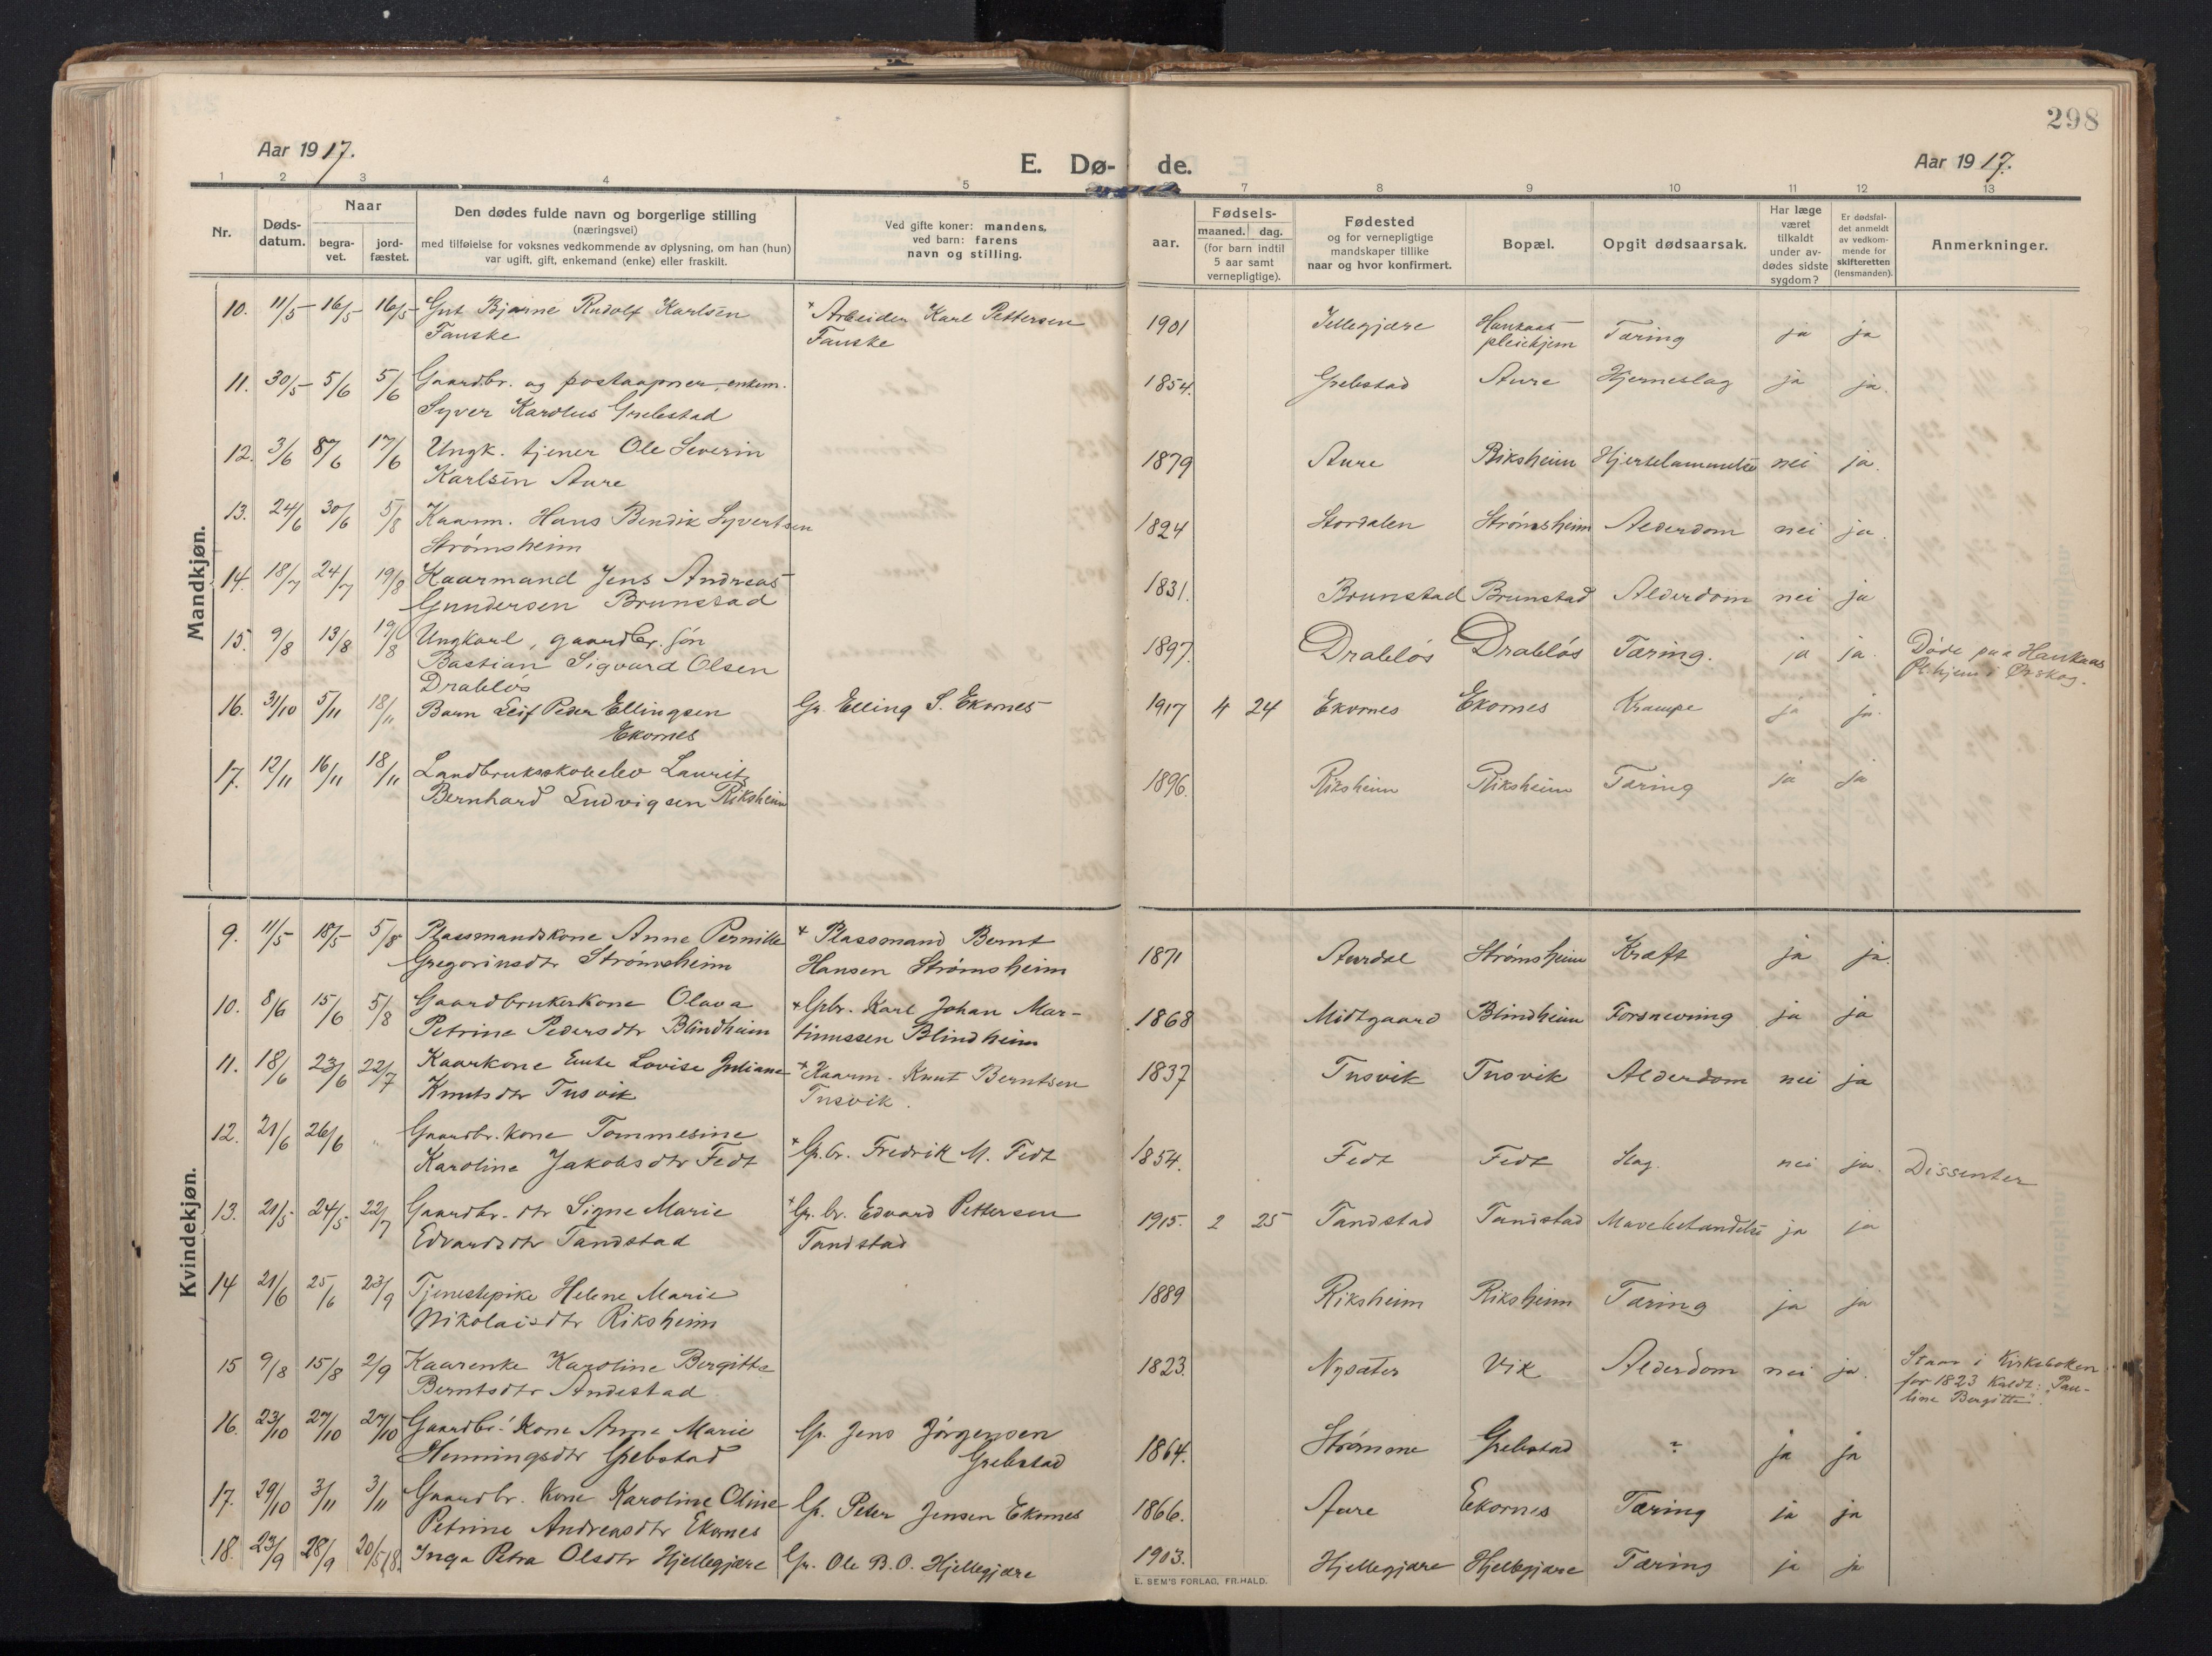 298
Aar 1917.
E. Dø- de.
Aar 1917.
1 2 3 4 5 7 8 9 10 11 12 13
Nr.
Døds-
datum.
Naar
begra-
vet.
jord-
fæstet.
Den dødes fulde navn og borgerlige stilling
(næringsvei)
med tilføielse for voksnes vedkommende av oplysning, om han (hun)
var ugift, gift, enkemand (enke) eller fraskilt.
Ved gifte koner: mandens,
ved barn: farens
navn og stilling.
aar.
Fødsels-
maaned. dag.
(for barn indtil
5 aar samt
vernepligtige).
Fødested
og for vernepligtige
mandskaper tillike
naar og hvor konfirmert.
Bopæl.
Opgit dødsaarsak.
Har læge
været
tilkaldt
under av-
dødes sidste
sygdom?
Er dødsfal-
det anmeldt
av vedkom-
mende for
skifteretten
(lensmanden).
Anmerkninger.
Mandkjøn.
10. 11/5 16/5 16/5 Gut Bjarne Rudolf Karlsen + Arbeider Karl Pettersen 1901 Jellegjære Haukaas Tæring ja ja
Fauske Fauske pleiehjem
11. 30/5 5/6 5/6 Gaardbr. og postaapner, enkem. 1854. Grebstad Aure Hjerneslag ja ja.
Syver Karolus Grebstad
12. 3/6 8/6 17/6 Ungk. tjener Ole Severin 1879 Aure Riksheim Hjertelammelse nei ja.
Karlsen Aure
13. 24/6 30/6 5/8 Kaarm. Hans Bendik Syvertsen 1824 Stordalen Strømsheim Alderdom nei ja.
Strømsheim
14. 18/7 24/7 19/8 Kaarmand Jens Andreas 1831. Brunstad Brunstad Alderdom nei ja
Gundersen Brunstad
15. 9/8 13/8 19/8 Ungkarl, gaardbr. søn 1897. Drabløs Drabløs Tæring. ja ja. Døde paa Haukaas
Bastian Sigvard Olsen Pl.hjem i Ørskog.
Drabløs
16. 31/10 5/11 18/11 Barn Leif Peder Ellingsen Gr. Elling S. Ekornes 1917 4 24 Ekornes Ekornes Krampe ja ja.
Ekornes
17. 12/11 16/11 18/11 Landbruksskoleelev Laurits 1896. Riksheim Riksheim Tæring ja ja
Bernhard Ludvigsen Riksheim
Kvindekjøn.
9. 11/5 18/5 5/8 Plassmandskone Anne Pernille + Plassmand Bernt 1871 Aurdal Strømsheim Kræft ja ja.
Gregoriusdtr Strømsheim Hansen Strømsheim
10. 8/6 15/6 5/8 Gaardbrukerkone Olava + Gbr. Karl Johan Mar- 1868 Midtgaard Blindheim Forsnevring ja ja
Petrine Pedersdtr Blindheim tinussen Blindheim
11. 18/6 23/6 22/7 Kaarkone Lovise Juliane + Kaarm. Knut Berntsen 1837 Tusvik Tusvik Alderdom nei ja
Knutsdtr Tusvik Tusvik.
12. 21/6 26/6 " Gaardbr. kone Tommesine + G.br. Fredrik M. Fedt 1854. Fedt Fedt Slag. nei ja. Dissenter
Karoline Jakobsdtr Fedt
13. 21/5 24/5 22/7 Gaardbr. dtr Signe Marie + G. br. Edvard Pettersen 1915. 2 25 Tandstad Tandstad ja ja
Edvardsdtr Tandstad Tandstad
14 21/6 25/6 23/9 Tjenestepike Helene Marie 1889 Riksheim Riksheim Tæring ja ja
Nikolaisdtr Riksheim
15 9/8 15/8 2/9 Kaarenke Karoline Bergitte 1823. Nysæter Vik Alderdom nei ja. Staar i Kirkeboken
Berntsdtr Andestad for 1823 kaldt: Pau-
line Bergitte.
16. 23/10 27/10 27/10 Gaardbr. kone Anne Marie G. Jens Jørgensen 1864. Strømme Grebstad ? ja ja
Henningsdtr Grebstad Grebstad
17. 29/10 3/11 3/11 Gaardbr. kone Karoline Oline G. Peter Jensen Ekornes 1866. Aure Ekornes Tæring ja ja
Petrine Andreasdtr Ekornes
18. 23/9 28/9 20/5 18. Inga Petra Olsdtr Hjellegjære Gr. Ole B. O. Hjellegjære 1903. Hjellegjære Hjellegjære Tæring ja ja
E. SEM'S FORLAG, FR.HALD.